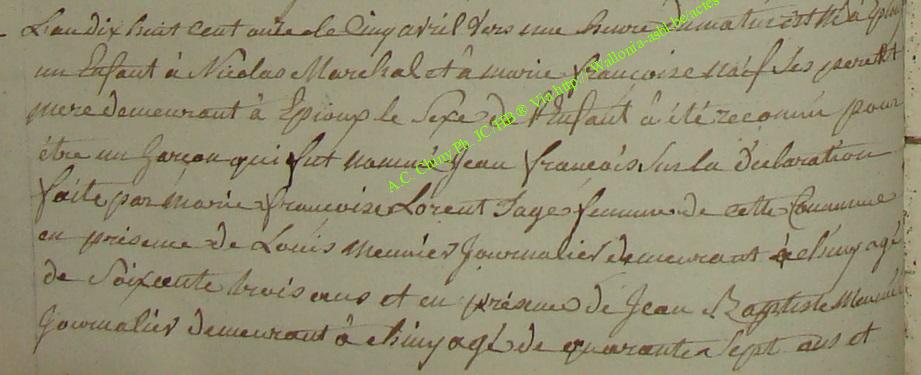 L'an dix huit cent onze le Cinq avril vers une heure du matin est né à Epioux
un Enfant à Nicolas Maréchal et à marie françoise naif Ses pere et
mere demeurant à Epioux le Sexe de l'Enfant à été reconnu pour
être un Garçon qui fut nommé Jean françois Sur la déclaration
faite par marie françoise Lorent Sage femme de cette Commune
en présence de Louis meunier Journalier demeurant à chiny agé
de Soixente trois ans et en présence de Jean Baptiste Meunier
Journalier demeurant à chiny agé de quarante Sept ans et
A.C. Chiny Ph. JC. HB® Via http://Wallonia-asbl.be/actes